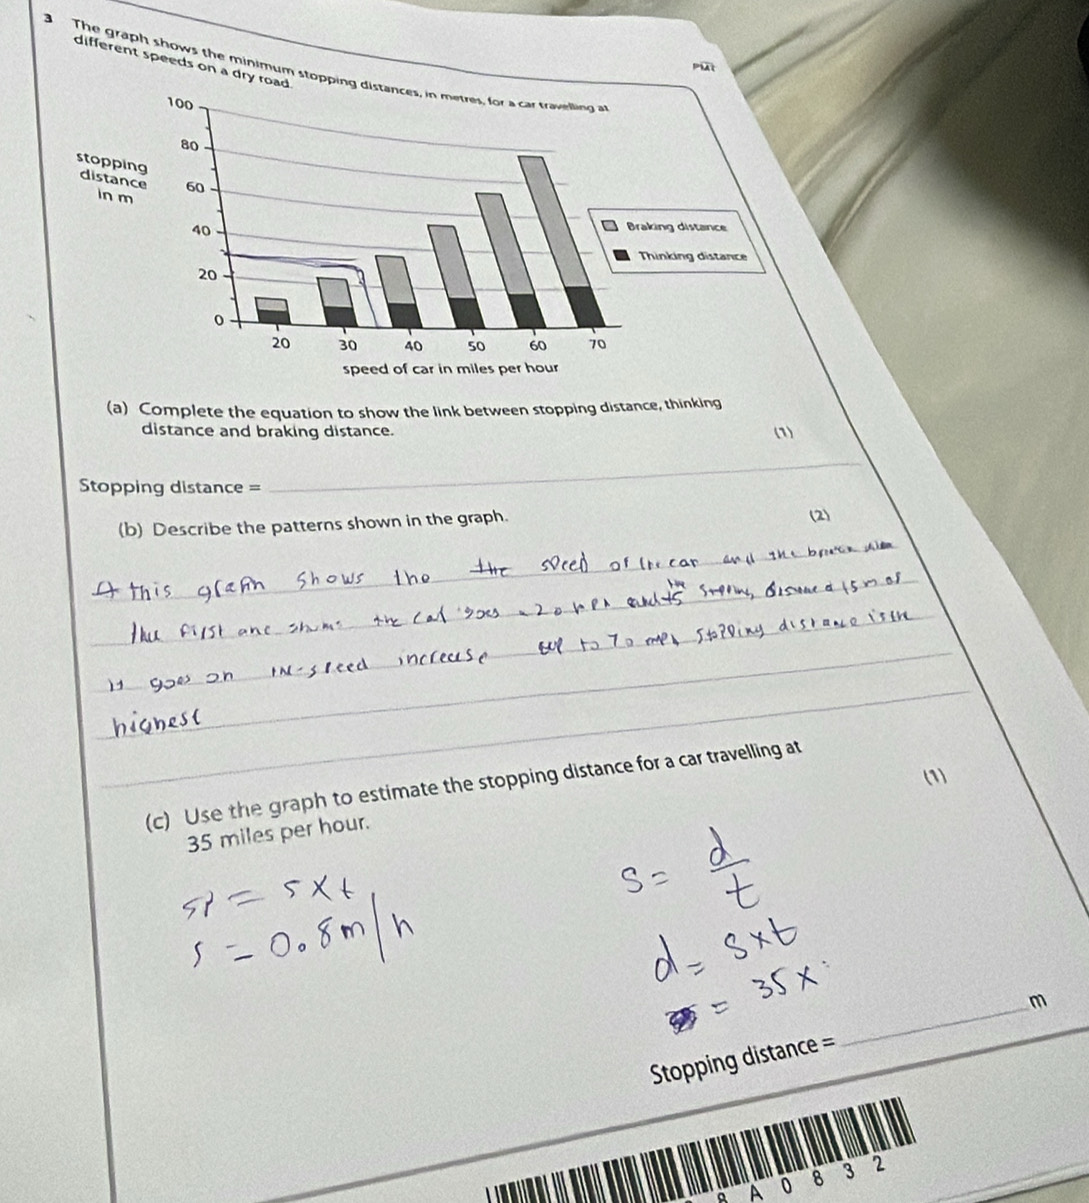 PMT
3 The graph shows the minimum stopping distances, in metres, for a car travelling at
different speeds on a dry road.
stopping
distance
in m
100
80
60
40
20
0
20 30 40 50 60 70
speed of car in miles per hour
Braking distance
Thinking distance
(a) Complete the equation to show the link between stopping distance, thinking
distance and braking distance.
(1)
Stopping distance =
(b) Describe the patterns shown in the graph.
(2)
this shows the the speed of the car and the
the first one the car goes 20 15m as
it goes on speed increase to 70 distance is the
highest
(c) Use the graph to estimate the stopping distance for a car travelling at
35 miles per hour.
(1)
= s x t
s = 0.8m/h
s = d/t
d = s x t
= 35 x
Stopping distance = m
A 0 8 3 2